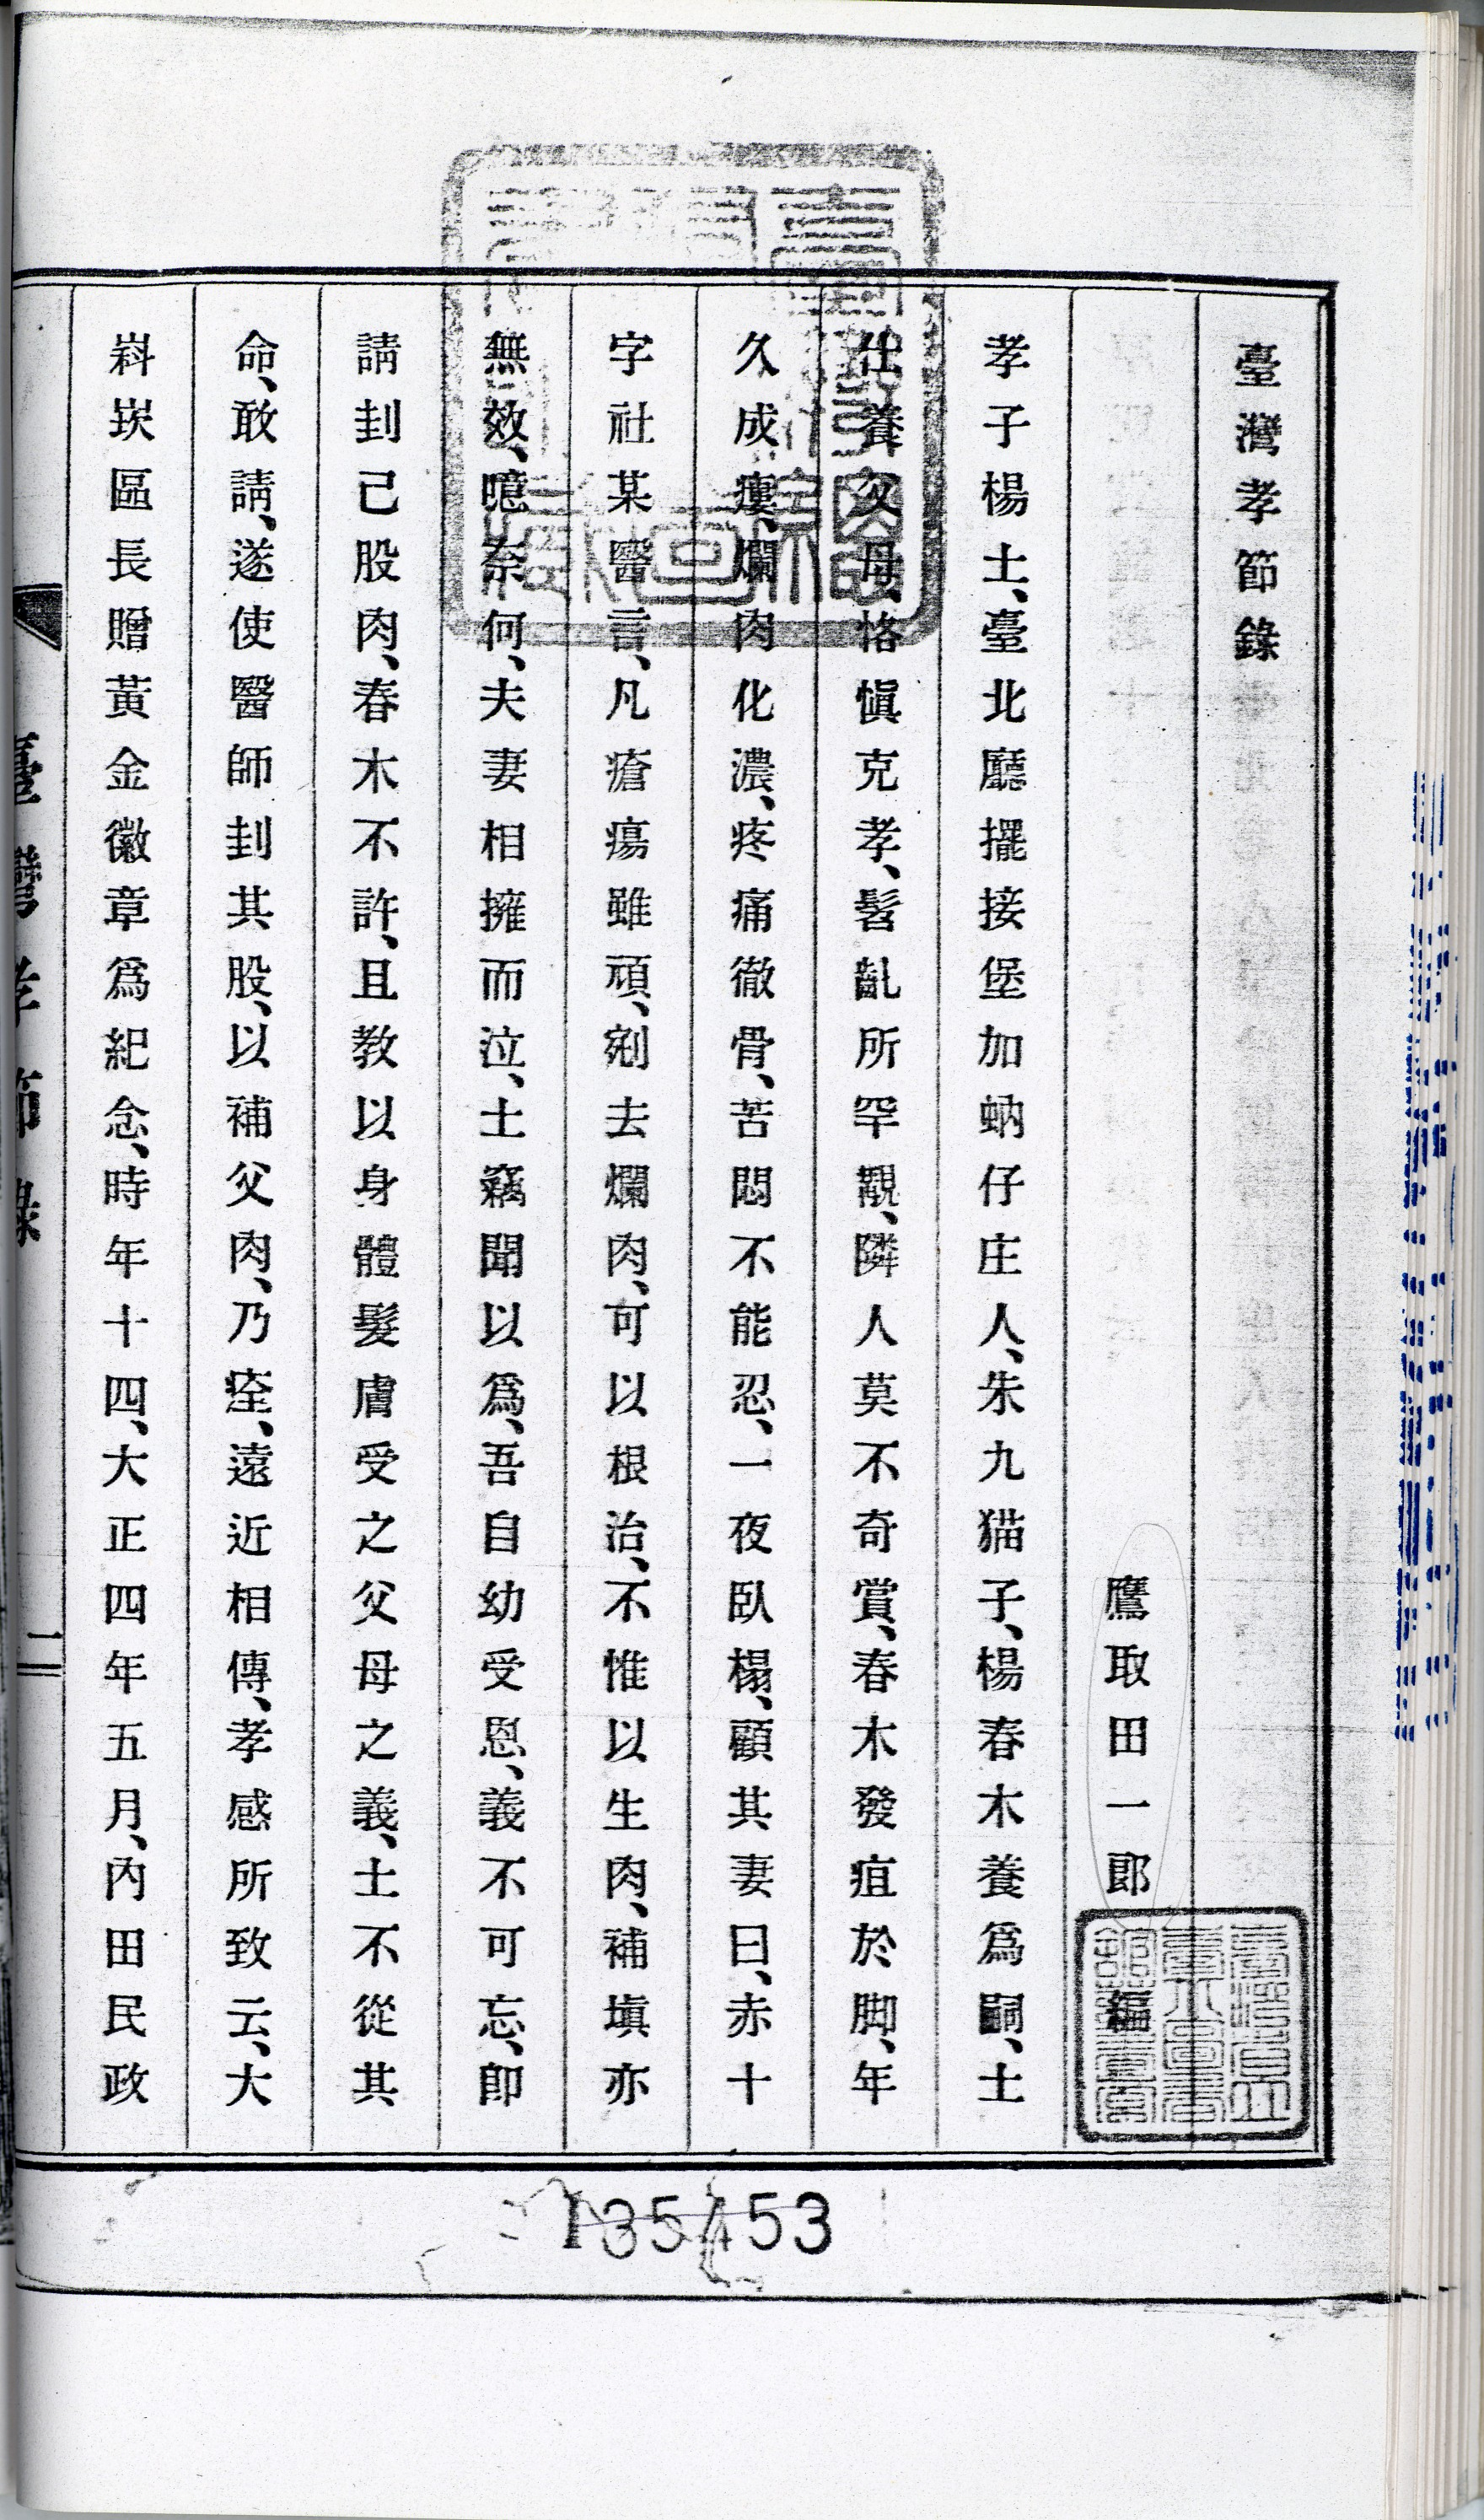 臺灣孝節錄
鷹取田一郞 編
孝子楊土、臺北廳擺接堡加蚋仔庄人、朱九猫子、楊春木養爲嗣、土
仕養父母、恪愼克孝、髫齓所罕觀、隣人莫不奇賞、春木發疽於脚、年
久成瘻、爛肉化濃、疼痛徹骨、苦悶不能忍、一夜臥榻、顧其妻曰、赤十
字社某醫言、凡瘡瘍雖頑、剜去爛肉、可以根治、不惟以生肉、補塡亦
無效、噫奈何、夫妻相擁而泣、土竊聞以爲、吾自幼受恩、義不可忘、卽
請刲己股肉、春木不許、且教以身體髮膚受之父母之義、土不從其
命、敢請、遂使醫師刲其股、以補父肉、乃痊、遠近相傳、孝感所致云、大
嵙崁區長贈黃金徽章爲紀念、時年十四、大正四年五月、內田民政
臺灣孝節錄
一
135453